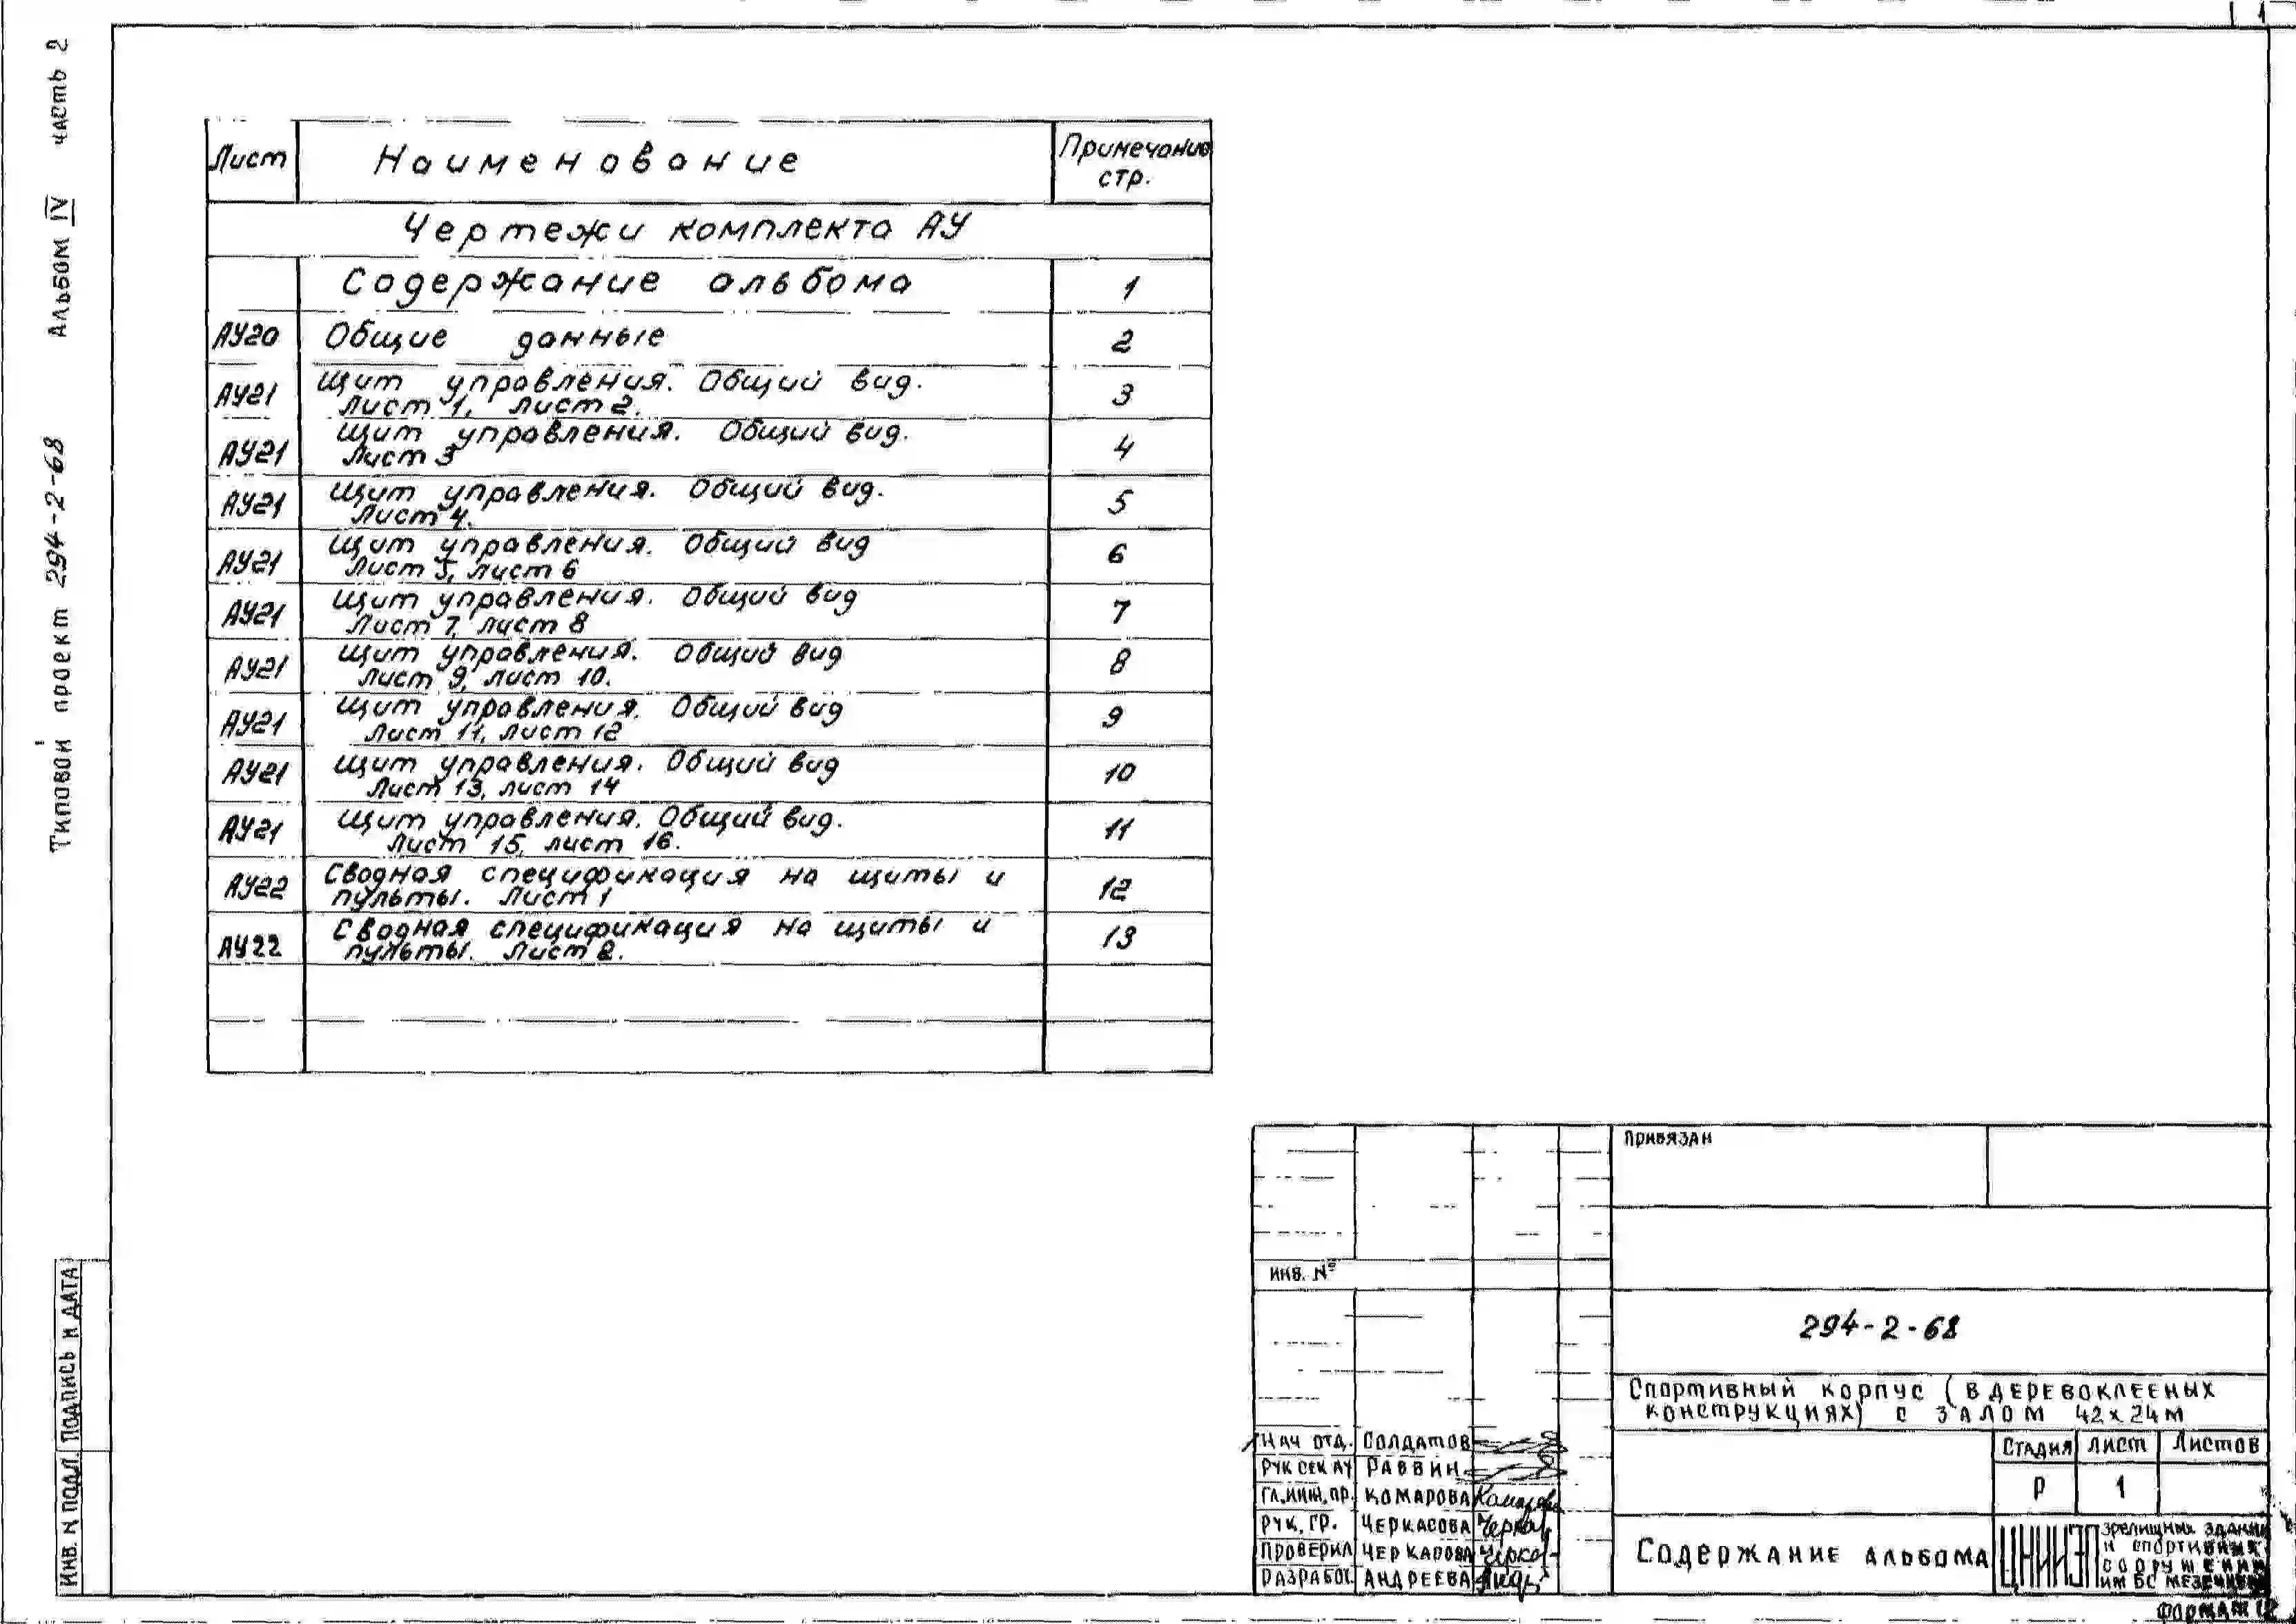 1
Типовой проект 294-2-68 Альбом IV часть 2
Лист Наименование Примечание стр.
Чертежи комплекта АУ
Содержание альбома 1
АУ20 Общие данные 2
АУ21 Щит управления. Общий вид. 3
Лист 1, лист 2.
АУ21 Щит управления. Общий вид. 4
Лист 3
АУ21 Щит управления. Общий вид. 5
Лист 4.
АУ21 Щит управления. Общий вид 6
Лист 5, лист 6
АУ21 Щит управления. Общий вид 7
Лист 7, лист 8
АУ21 Щит управления. Общий вид 8
Лист 9, лист 10.
АУ21 Щит управления. Общий вид 9
Лист 11, лист 12
АУ21 Щит управления. Общий вид 10
Лист 13, лист 14
АУ21 Щит управления. Общий вид. 11
Лист 15, лист 16.
АУ22 Сводная спецификация на щиты и 12
пульты. Лист 1
АУ22 Сводная спецификация на щиты и 13
пульты. Лист 2.
Привязан
Инв. №
294-2-68
Спортивный корпус (в деревоклееных
конструкциях) с залом 42х24м
Нач отд. Солдатов
Рук сек АУ Раввин
Гл.инж.пр. Комарова
Рук. гр. Черкасова
Проверил Черкасова
Разработ. Андреева
Стадия Лист Листов
Р 1
Содержание альбома
ЦНИИЭП
зрелищных зданий
и спортивных
сооружений
им БС Мезенцева
Формат 12
Инв. N подл. Подпись и дата